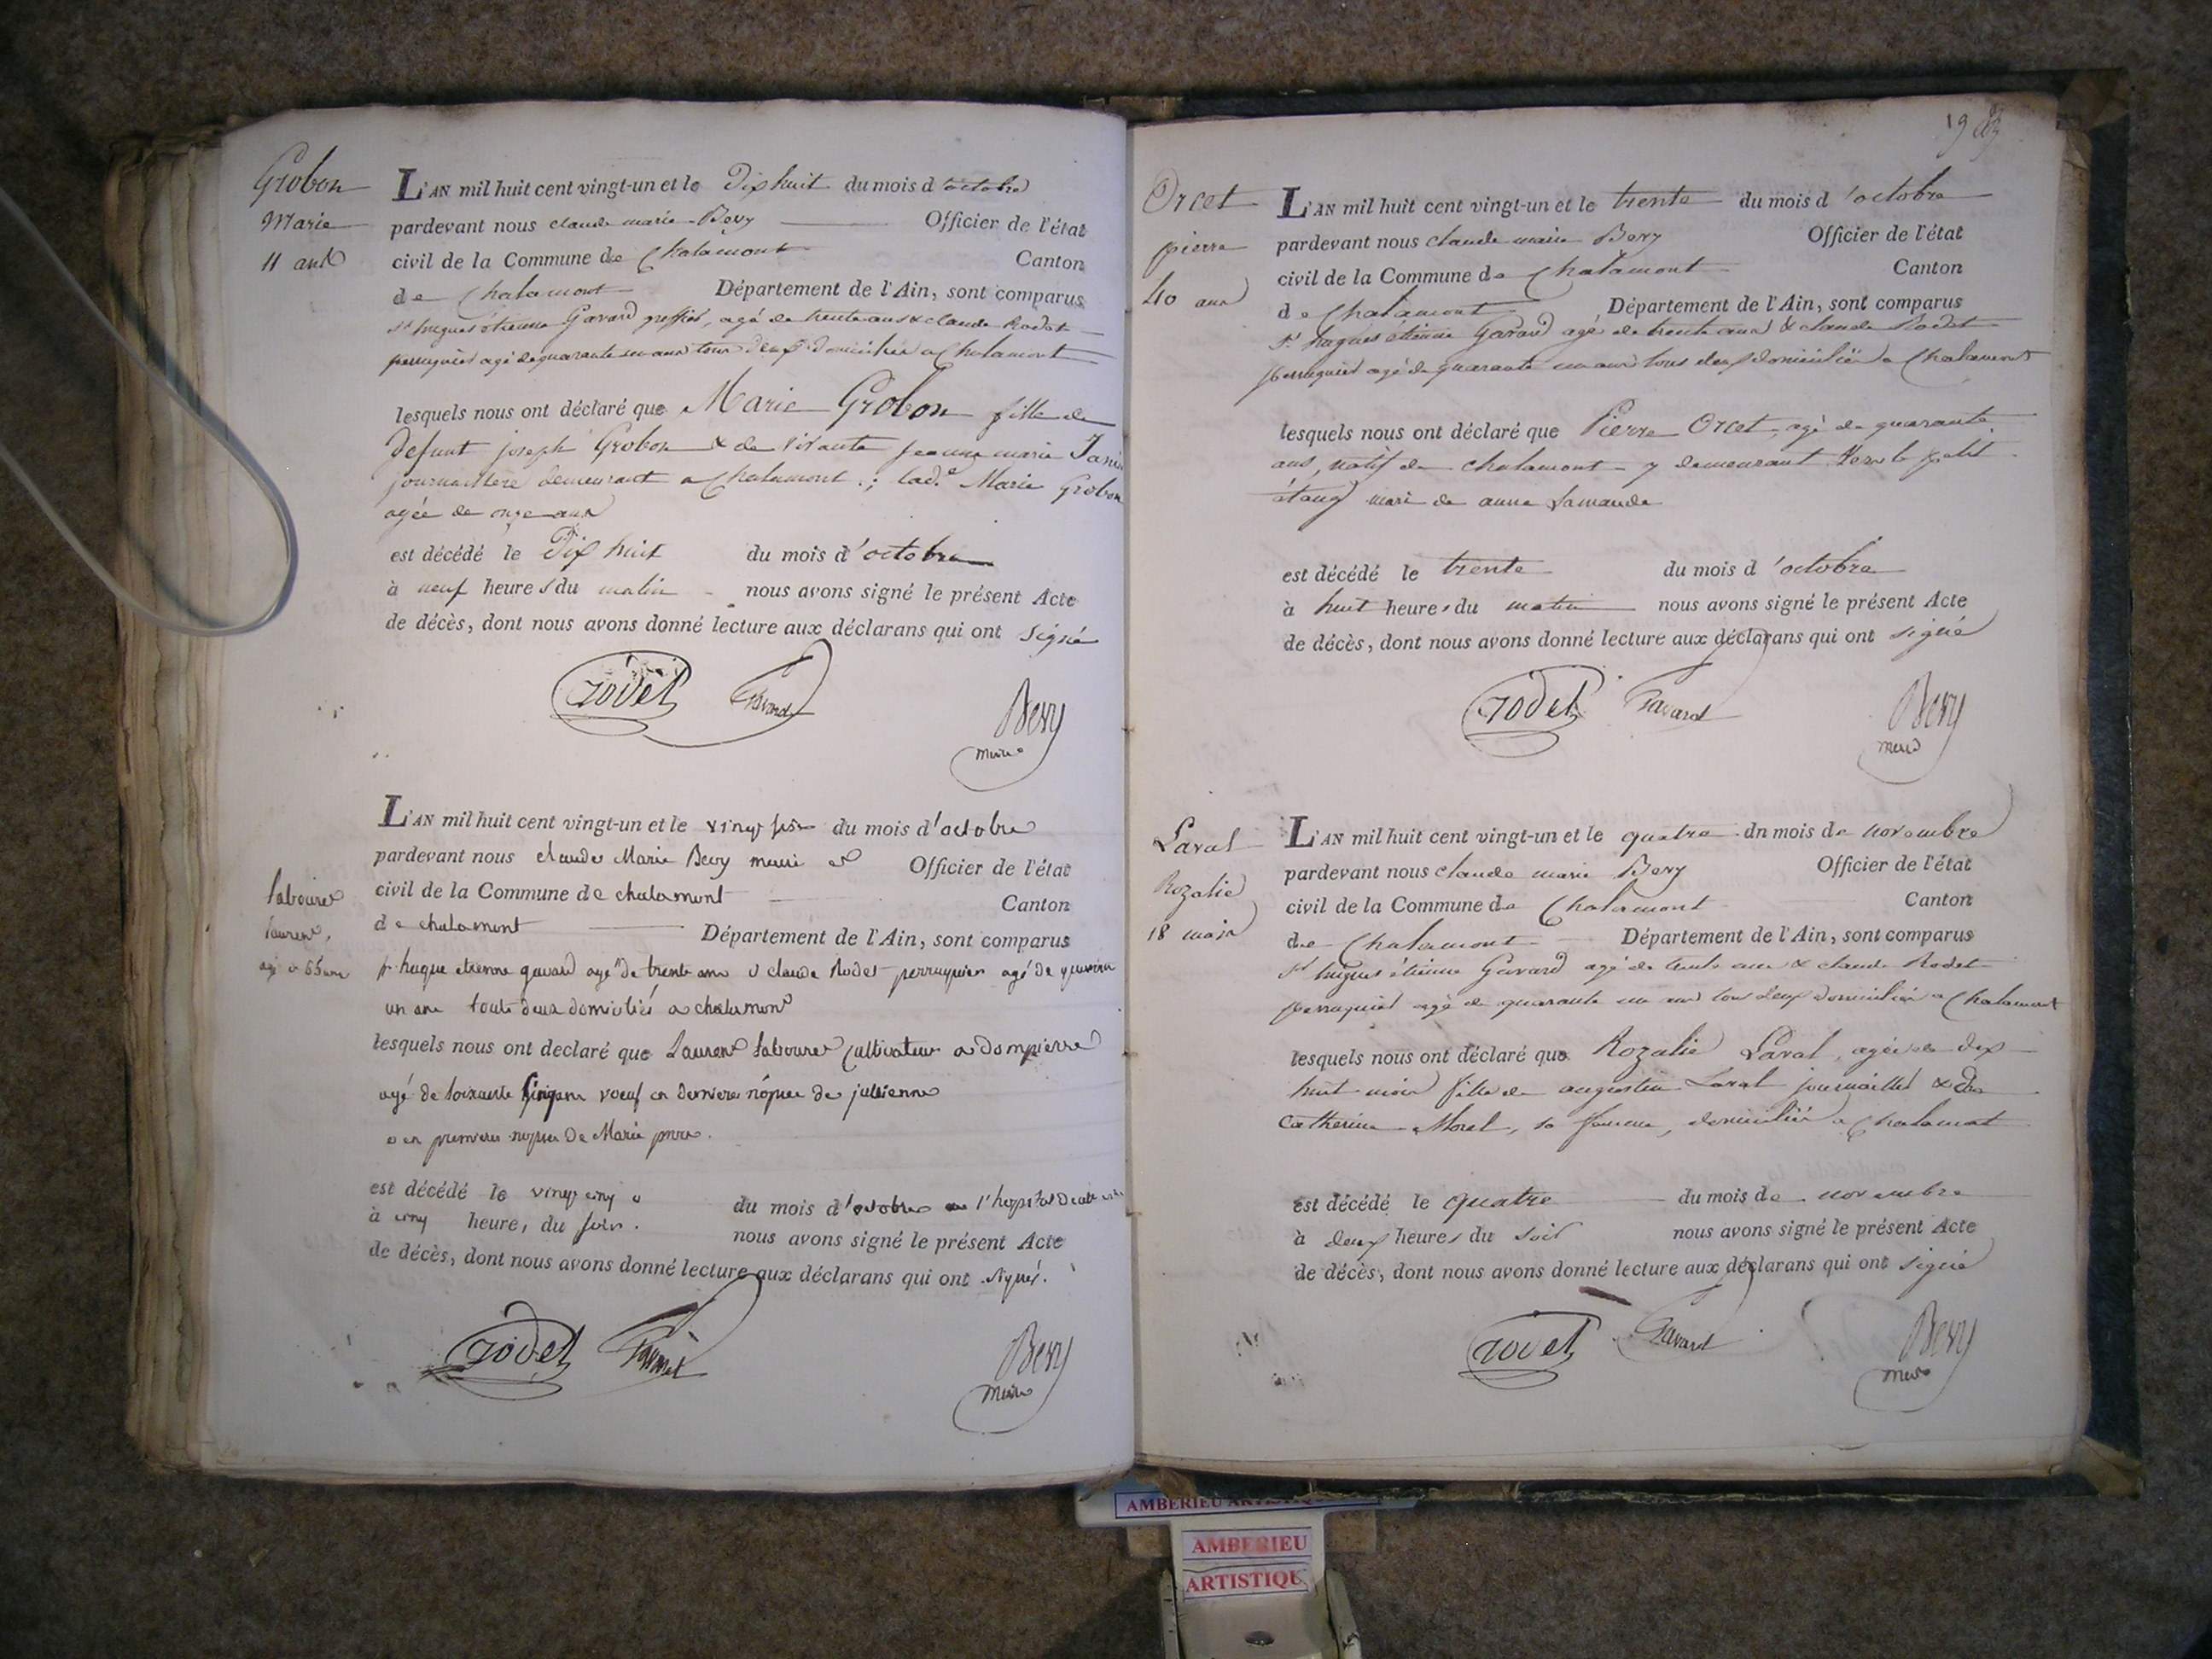 Grobon
Marie
11 ans
L'AN mil huit cent vingt-un et le Dix huit du mois d'octobre
pardevant nous claude marie Bevy Officier de l'état
civil de la Commune de Chalamont Canton
de Chalamont Département de l'Ain, sont comparus
Sr hugues étienne Gavard greffier, agé de trente ans & claude Rodet
perruquier agé de quarante un ans tous deux domiciliés a Chalamont
lesquels nous ont déclaré que Marie Grobon fille de
Defunt joseph Grobon & de vivante jeanne marie
journalière demeurant a Chalamont ; lade Marie Grobon
agée de onze ans
est décédé le Dix huit du mois d'octobre
à neuf heures du matin nous avons signé le présent Acte
de décès, dont nous avons donné lecture aux déclarans qui ont signé
Rodet Gavard Bevy
maire
L'AN mil huit cent vingt-un et le du mois d'octobre
pardevant nous claude Marie Bevy maire Officier de l'état
civil de la Commune de chalamont Canton
de chalamont Département de l'Ain, sont comparus
Labouret
Laurent,
agé de 65 ans
sr hugue etienne gavard agé de trente ans & claude Rodet perruquier agé de quarante
un ans touts deux domiciliés a chalamont
lesquels nous ont declaré que Laurent Labouret Cultivateur a dompierre
agé de soixante Cinq ans voeuf en dernieres nopces de jullienne
& en premieres nopces de Marie
est décédé le vingt cinq du mois d'octobre a l'hopital de cette
à cinq heure, du soir. nous avons signé le présent Acte
de décès, dont nous avons donné lecture aux déclarans qui ont signés.
Rodet Gavard Bevy
maire
19
Orcet
pierre
40 ans
L'AN mil huit cent vingt-un et le trente du mois d'octobre
pardevant nous claude marie Bevy Officier de l'état
civil de la Commune de Chalamont Canton
de Chalamont Département de l'Ain, sont comparus
Sr hugues étienne Gavard agé de trente ans & claude Rodet
perruquier agé de quarante un ans tous deux domiciliés a Chalamont
lesquels nous ont déclaré que Pierre Orcet, agé de quarante
ans, natif de chalamont y demeurant vers le petit
étang mari de anne Lamande
est décédé le trente du mois d'octobre
à huit heures du matin nous avons signé le présent Acte
de décès, dont nous avons donné lecture aux déclarans qui ont signé
Rodet Gavard Bevy
maire
Laval
Rozalie
18 mois
L'AN mil huit cent vingt-un et le quatre dn mois de novembre
pardevant nous claude marie Bevy Officier de l'état
civil de la Commune de Chalamont Canton
de Chalamont Département de l'Ain, sont comparus
Sr hugues étienne Gavard agé de trente ans & claude Rodet
perruquier agé de quarante un ans tous deux domiciliés a Chalamont
lesquels nous ont déclaré que Rozalie Laval, agée de dix
huit mois fille de augustin Laval journaillier & de
Catherine Morel, sa femme, domiciliés a Chalamont
est décédé le quatre du mois de novembre
à deux heures du soir nous avons signé le présent Acte
de décès, dont nous avons donné lecture aux déclarans qui ont signé
Rodet Gavard Bevy
maire
AMBERIEU ARTISTIQUE
AMBERIEU
ARTISTIQU